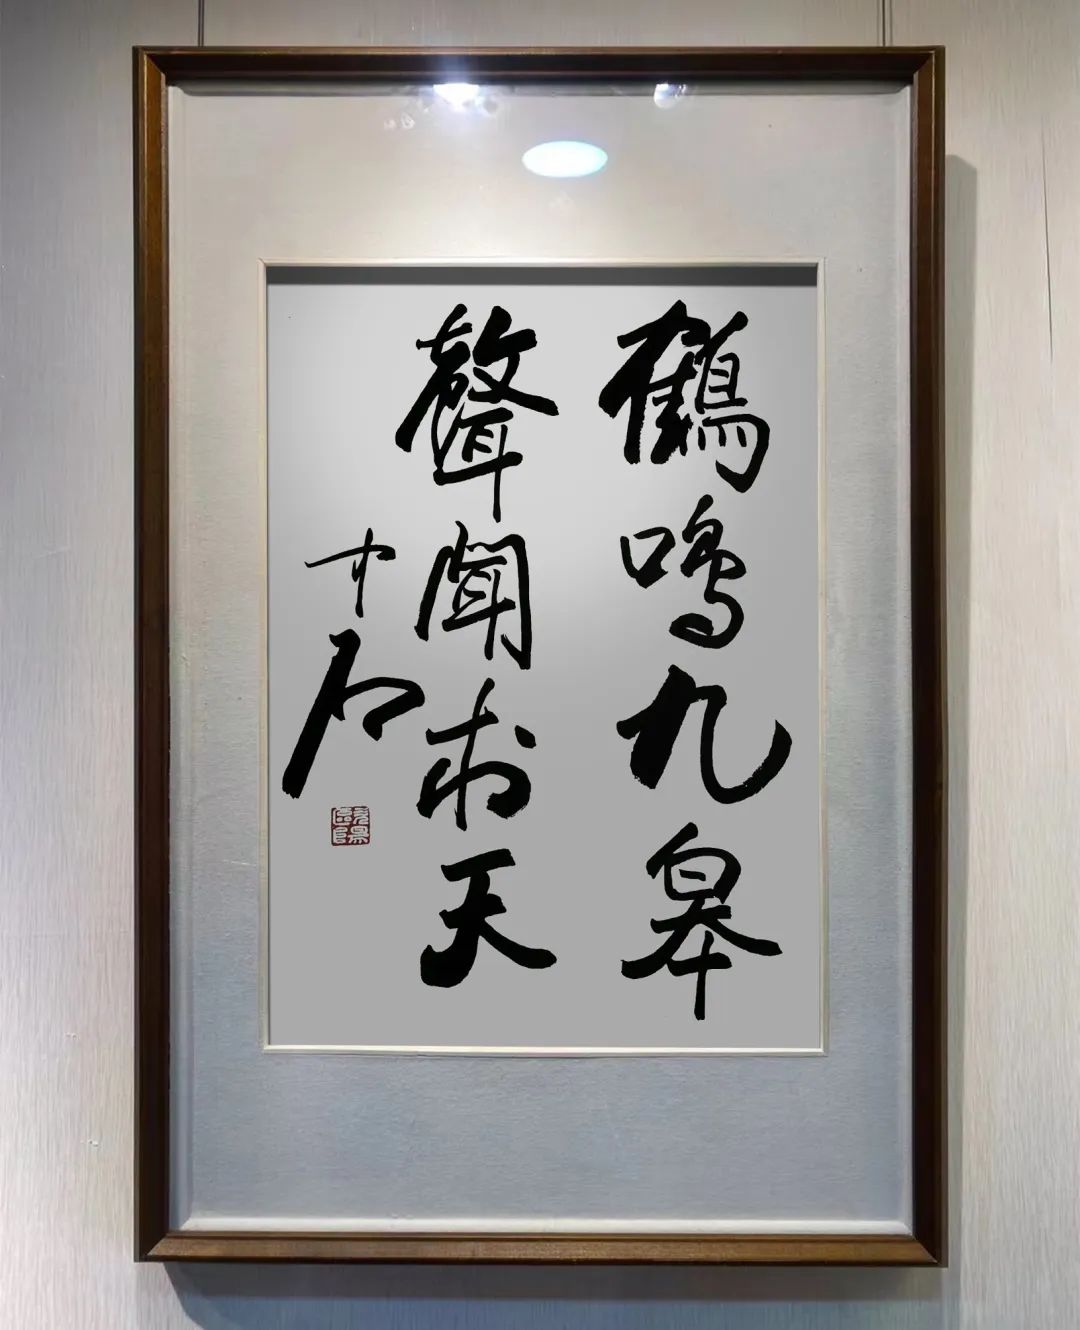 鶴鳴九皋
聲聞於天
中石